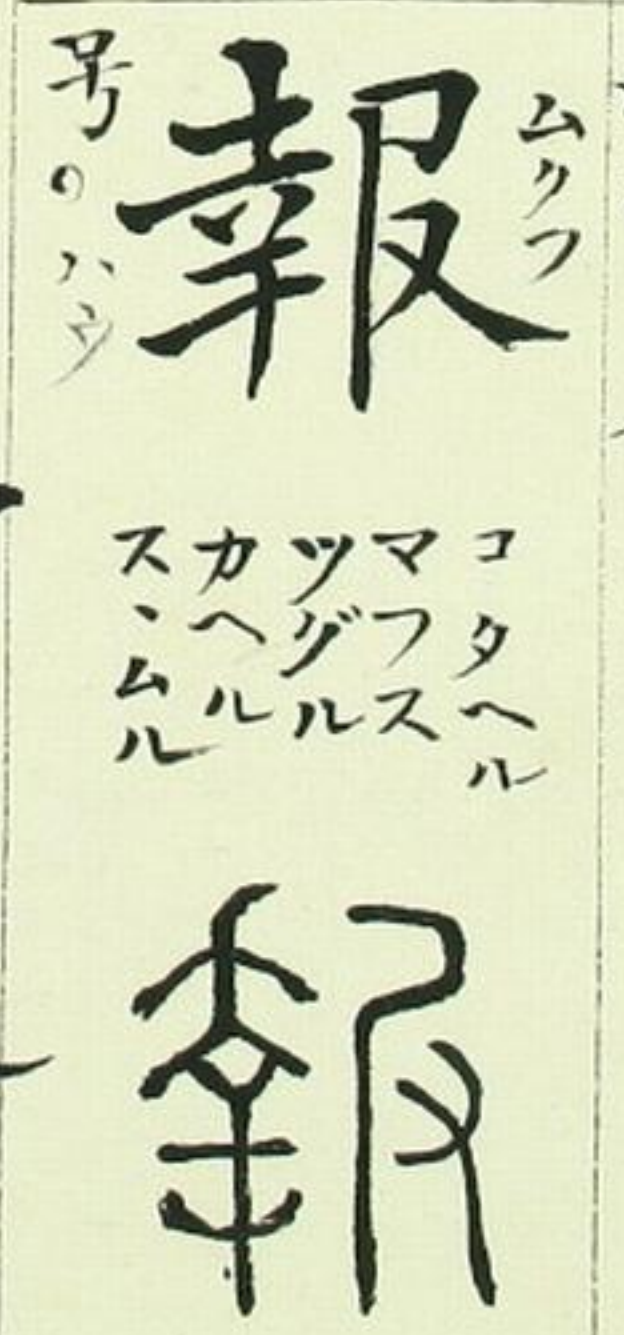 ムクフ
報
号のハウ
コタヘル
マフス
ツグル
カヘル
スヽムル
報